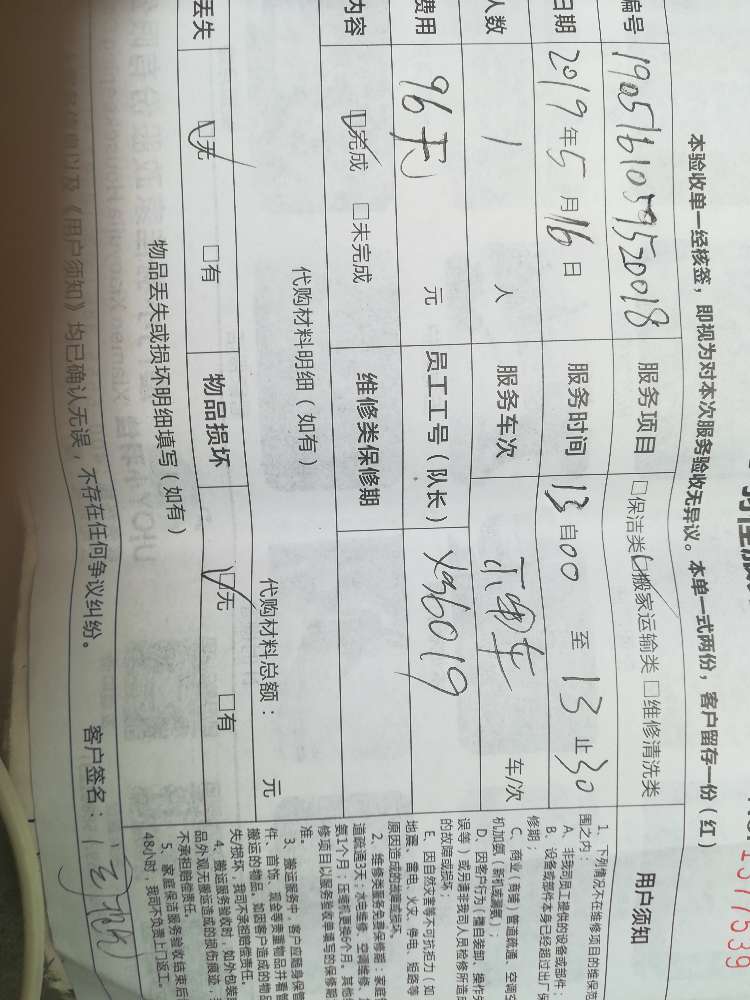 本验收单一经核签，即视为对本次服务验收无异议。本单一式两份，客户留存一份（红）
1377539
编号 1905161059520018 服务项目 □保洁类 ☑搬家运输类 □维修清洗类
日期 2019年5月16日 服务时间 13自00至13止30
人数 1 人 服务车次 不用车 车/次
费用 96元 元 员工工号（队长） 036019
内容 ☑完成 □未完成 维修类保修期
代购材料明细（如有） 代购材料总额： 元
丢失 ☑无 □有 物品损坏 ☑无 □有
物品丢失或损坏明细填写（如有）
《用户须知》均已确认无误，不存在任何争议纠纷。
客户签名：
用户须知
1、下列情况不在维修项目的维保范
围之内：
A、非我司员工提供的设备或部件；
B、设备或部件本身已经超过出厂保
修期；
C、商业（商铺）管道疏通、空调空
机加氨（新机或漏氨）；
D、因客户行为（擅自装卸、操作失
误等）或另请非我司人员检修所造成
的故障或损坏；
E、因自然灾害等不可抗拒力（如
地震、雷电、火灾、停电、短路等
原因造成的故障或损坏。
2、维修类服务免费保修期：家庭
道疏通3天；水电维修、空调维修、
氨1个月；压缩机更换6个月。其他
修项目以服务验收单填写的保修期
准。
3、搬运服务中，客户应随身保管
件、首饰、现金等贵重物品并看管
失/损坏，我司不承担赔偿责任。
搬运的物品，如因客户造成的物品
4、搬运服务验收时，如外包装
品外观无搬运造成的损伤痕迹，
不承担赔偿责任。
5、家庭保洁服务验收结束后
48小时，我司不负责上门返工。